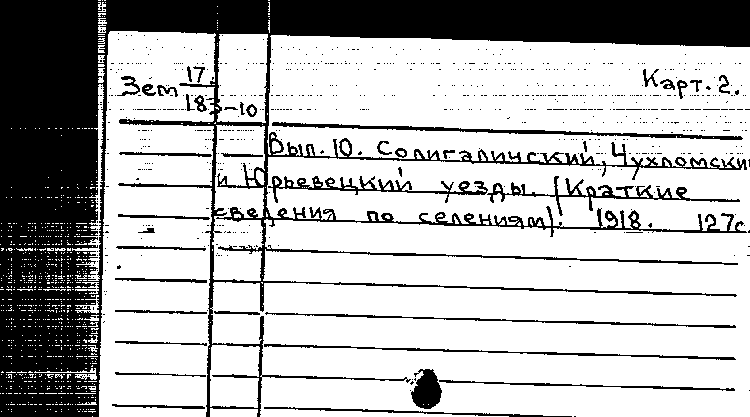 Зем 17. Карт. 2.
183-10
Вып. 10. Солигаличский, Чухломский
и Юрьевецкий уезды. (Краткие
сведения по селениям). 1918. 127с.